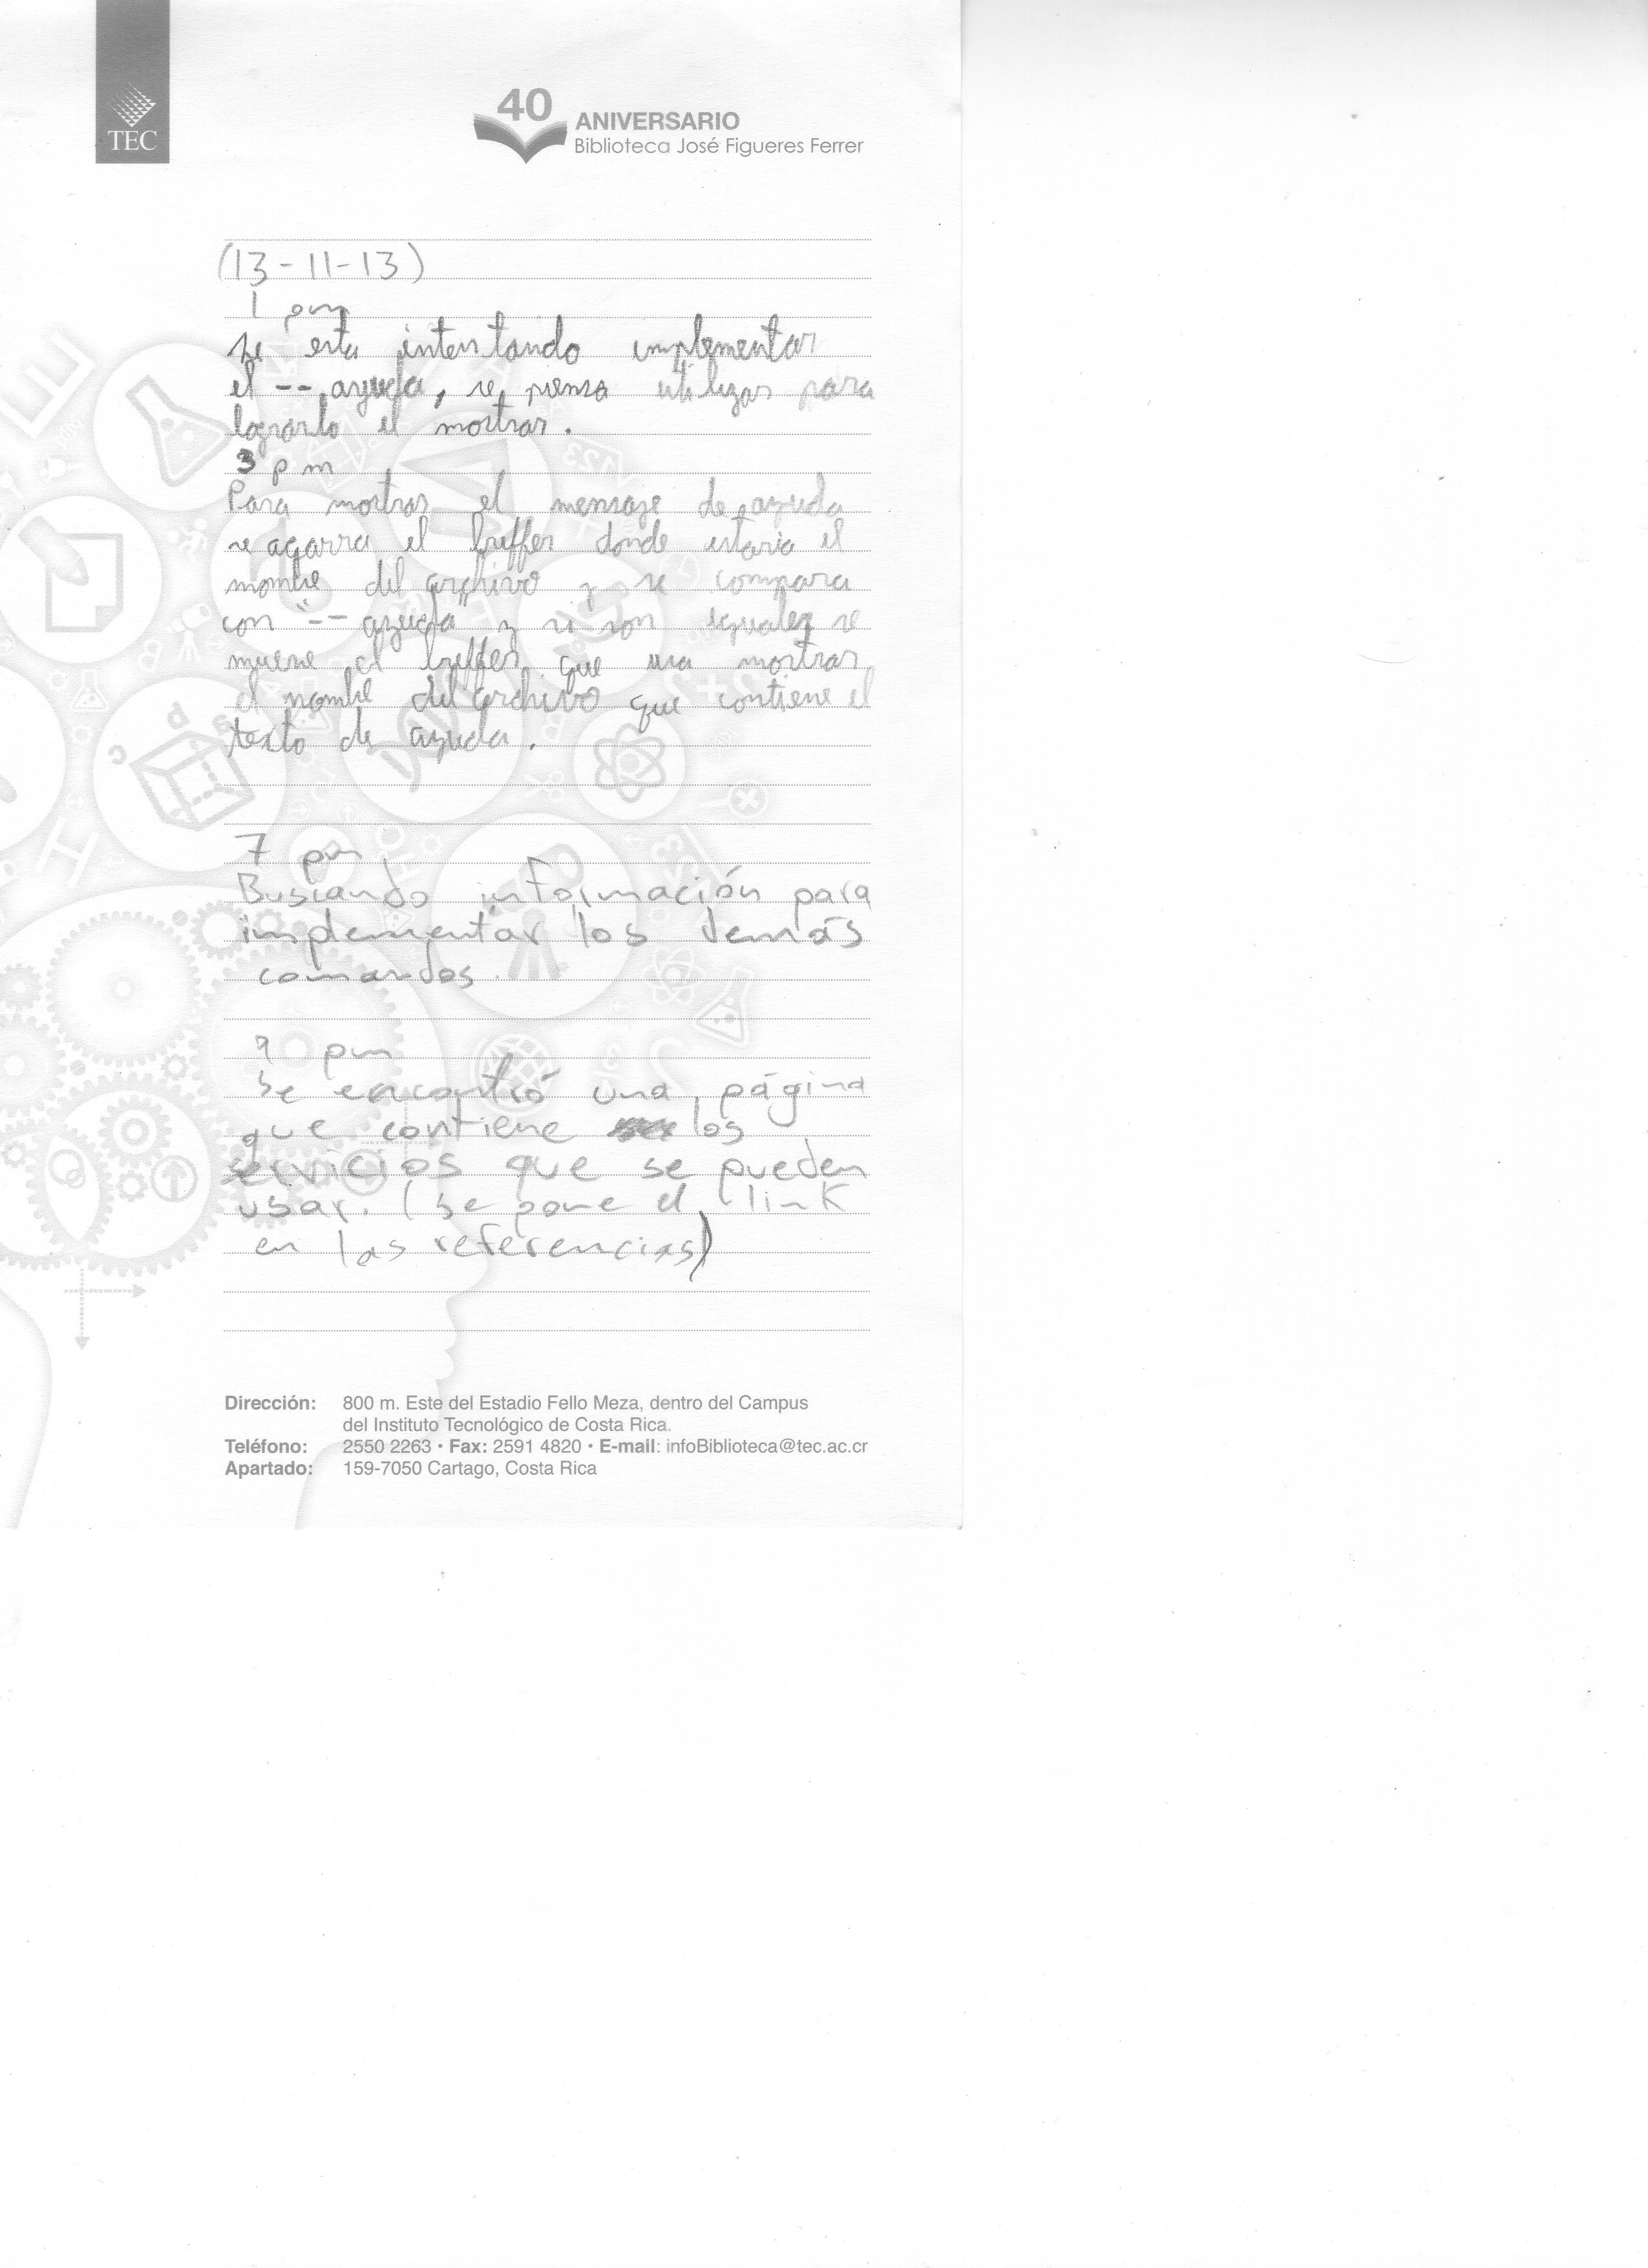 TEC
40
ANIVERSARIO
Biblioteca José Figueres Ferrer
(13-11-13)
1 pm
se esta intentando implementar
el -- ayuda, se piensa utilizar para
lograrlo el mostrar.
3 pm
Para mostrar el mensaje de ayuda
se agarra el buffer donde estaria el
nombre del archivo y se compara
con "-- ayuda" y si son iguales se
mueve al buffer que usa mostrar
el nombre del archivo que contiene el
texto de ayuda.
7 pm
Buscando información para
implementar los demás
comandos.
9 pm
Se encontró una página
que contiene los
servicios que se pueden
usar. (Se pone el link
en las referencias)
Dirección: 800 m. Este del Estadio Fello Meza, dentro del Campus
del Instituto Tecnológico de Costa Rica.
Teléfono: 2550 2263 • Fax: 2591 4820 • E-mail: infoBiblioteca@tec.ac.cr
Apartado: 159-7050 Cartago, Costa Rica